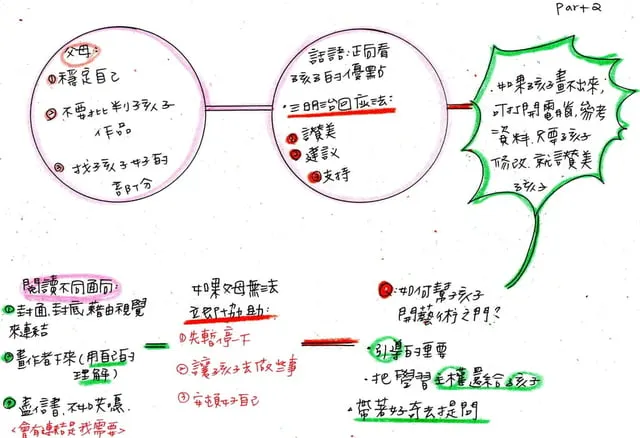 Part 2
父母:
①穩定自己
②不要批判孩子
作品
③找孩子好的
部分
話語:正向看
孩子的優點
·三明治回应法:
①讚美
②建議
③支持
·如果孩子畫不出來,
可打開電腦,參考
資料,只要孩子
修改,就讚美
孩子
閱讀不同面向:
①封面、封底,藉由視覺
來連結
②畫作者下來(用自己的
理解)
③盡信書,不如笑嗚.
<會有連結是我需要>
如果父母無法
立即協助:
①先暫停下
②讓孩子去做些事
③安頓好自己
:如何幫孩子
開藝術之門?
·引導的重要
·把學習主權還給孩子
·帶著好奇去提問